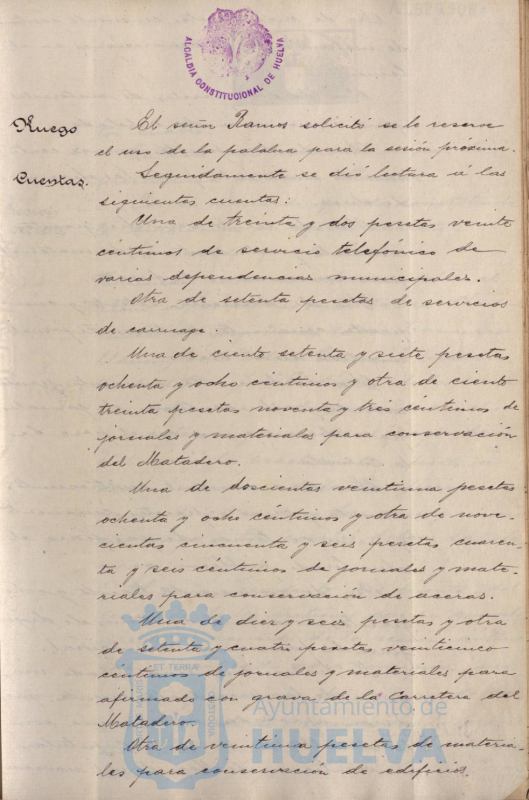 ALCALDÍA CONSTITUCIONAL DE HUELVA
Ruego
El señor Ramos solicitó se le reserve
el uso de la palabra para la sesión próxima.
Cuentas.
Seguidamente se dió lectura á las
siguientes cuentas:
Una de treinta y dos pesetas veinte
céntimos de servicio telefónico de
varias dependencias municipales.
Otra de setenta pesetas de servicios
de carruage.
Una de ciento setenta y siete pesetas
ochenta y ocho céntimos y otra de ciento
treinta pesetas noventa y tres céntimos de
jornales y materiales para conservación
del Matadero.
Una de doscientas veintiuna pesetas
ochenta y ocho céntimos y otra de nove-
cientas cincuenta y seis pesetas cuaren-
ta y seis céntimos de jornales y mate-
riales para conservación de aceras.
Una de diez y seis pesetas y otra
de setenta y cuatro pesetas veinticinco
céntimos de jornales y materiales para
afirmado con grava de la Carretera del
Matadero.
Otra de veintiuna pesetas de materia-
les para conservación de edificios.
ET TERRÆ
Ayuntamiento de
HUELVA